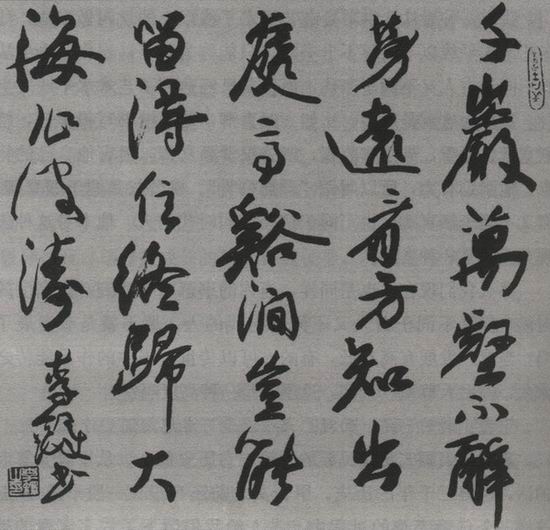 千巖萬壑不辭
勞遠看方知出
處高谿澗豈能
留得住終歸大
海作波濤
李鐸书